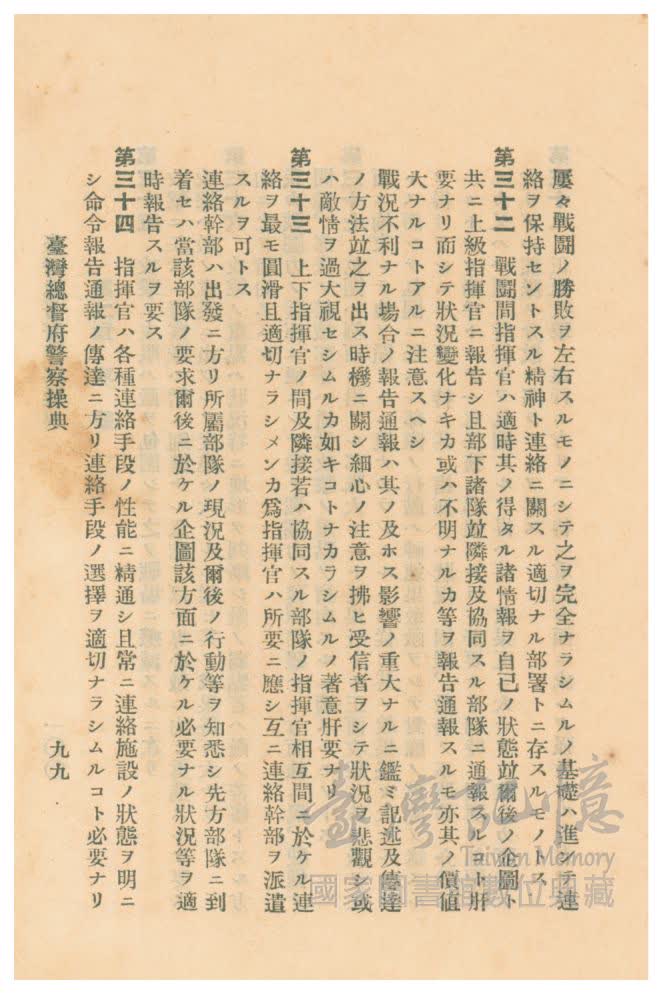 屢々戰鬪ノ勝敗ヲ左右スルモノニシテ之ヲ完全ナラシムルノ基礎ハ進ンテ連
絡ヲ保持セントスル精神ト連絡ニ關スル適切ナル部署トニ存スルモノトス
第三十二　戰鬪間指揮官ハ適時其ノ得タル諸情報ヲ自己ノ狀態竝爾後ノ企圖ト
共ニ上級指揮官ニ報告シ且部下諸隊竝隣接及協同スル部隊ニ通報スルコト肝
要ナリ而シテ狀況變化ナキカ或ハ不明ナルカ等ヲ報告通報スルモ亦其ノ價値
大ナルコトアルニ注意スヘシ
戰況不利ナル場合ノ報告通報ハ其ノ及ホス影響ノ重大ナルニ鑑ミ記述及傳達
ノ方法竝之ヲ出ス時機ニ關シ細心ノ注意ヲ拂ヒ受信者ヲシテ狀況ヲ悲觀シ或
ハ敵情ヲ過大視セシムルカ如キコトナカラシムルノ著意肝要ナリ
第三十三　上下指揮官ノ間及隣接若ハ協同スル部隊ノ指揮官相互間ニ於ケル連
絡ヲ最モ圓滑且適切ナラシメンカ爲指揮官ハ所要ニ應シ互ニ連絡幹部ヲ派遣
スルヲ可トス
連絡幹部ハ出發ニ方リ所屬部隊ノ現況及爾後ノ行動等ヲ知悉シ先方部隊ニ到
着セハ當該部隊ノ要求爾後ニ於ケル企圖該方面ニ於ケル必要ナル狀況等ヲ適
時報告スルヲ要ス
第三十四　指揮官ハ各種連絡手段ノ性能ニ精通シ且常ニ連絡施設ノ狀態ヲ明ニ
シ命令報告通報ノ傳達ニ方リ連絡手段ノ選擇ヲ適切ナラシムルコト必要ナリ
臺灣總督府警察操典
九九
臺灣記憶
Taiwan Memory
國家圖書館數位典藏